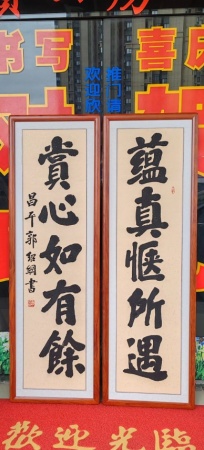 书写
喜庆
推门请
欢迎欣
蘊真愜所遇
賞心如有餘
昌平郭紹綱書
歡迎光臨